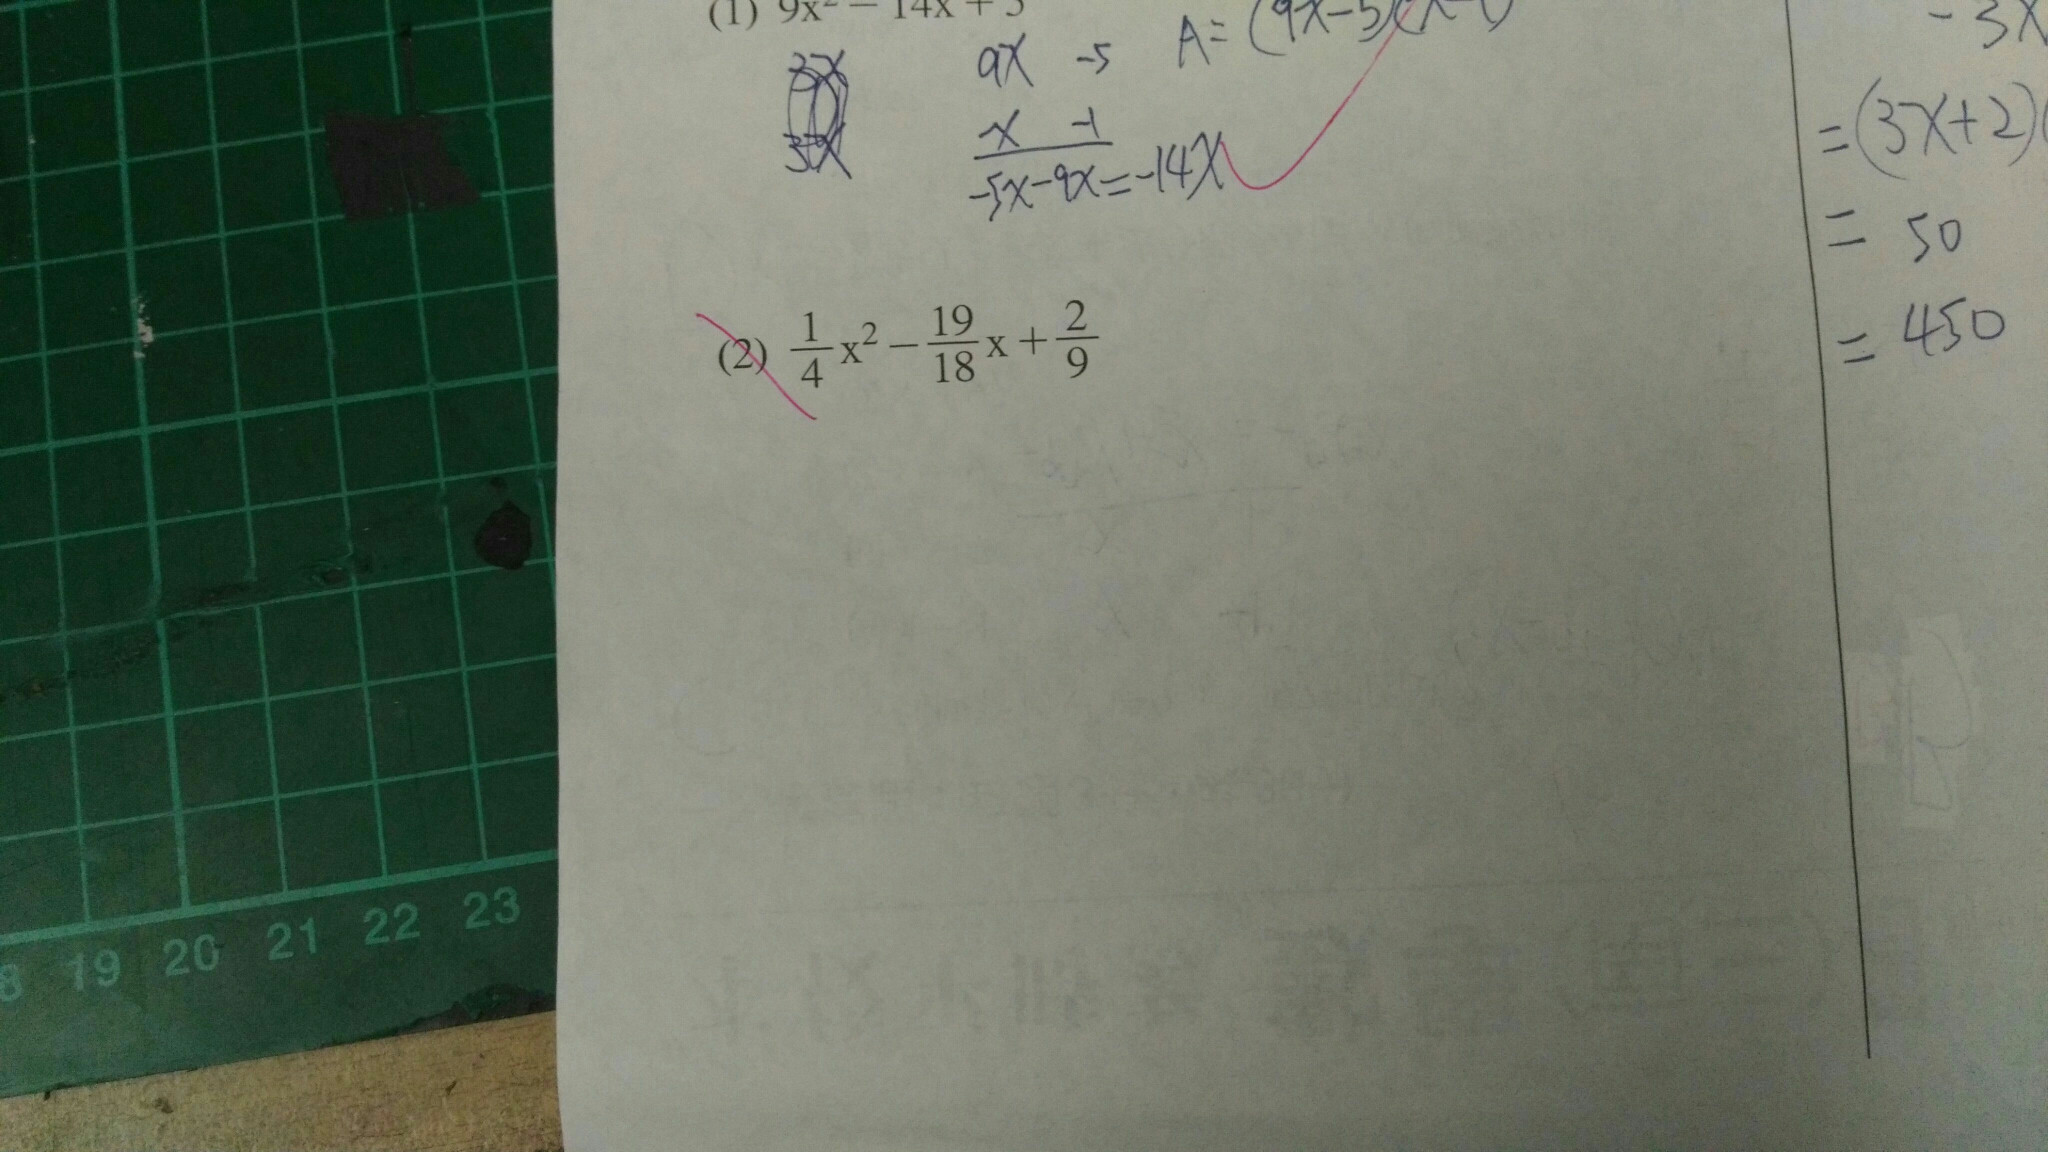 (1) 9x² − 14x + 5
A = (9x-5)(x-1)
3x
9x -5
x -1
3x
-5x-9x=-14x
(2) 1/4 x² − 19/18 x + 2/9
- 3x
= (3x+2)(
= 50
= 450
8 19 20 21 22 23